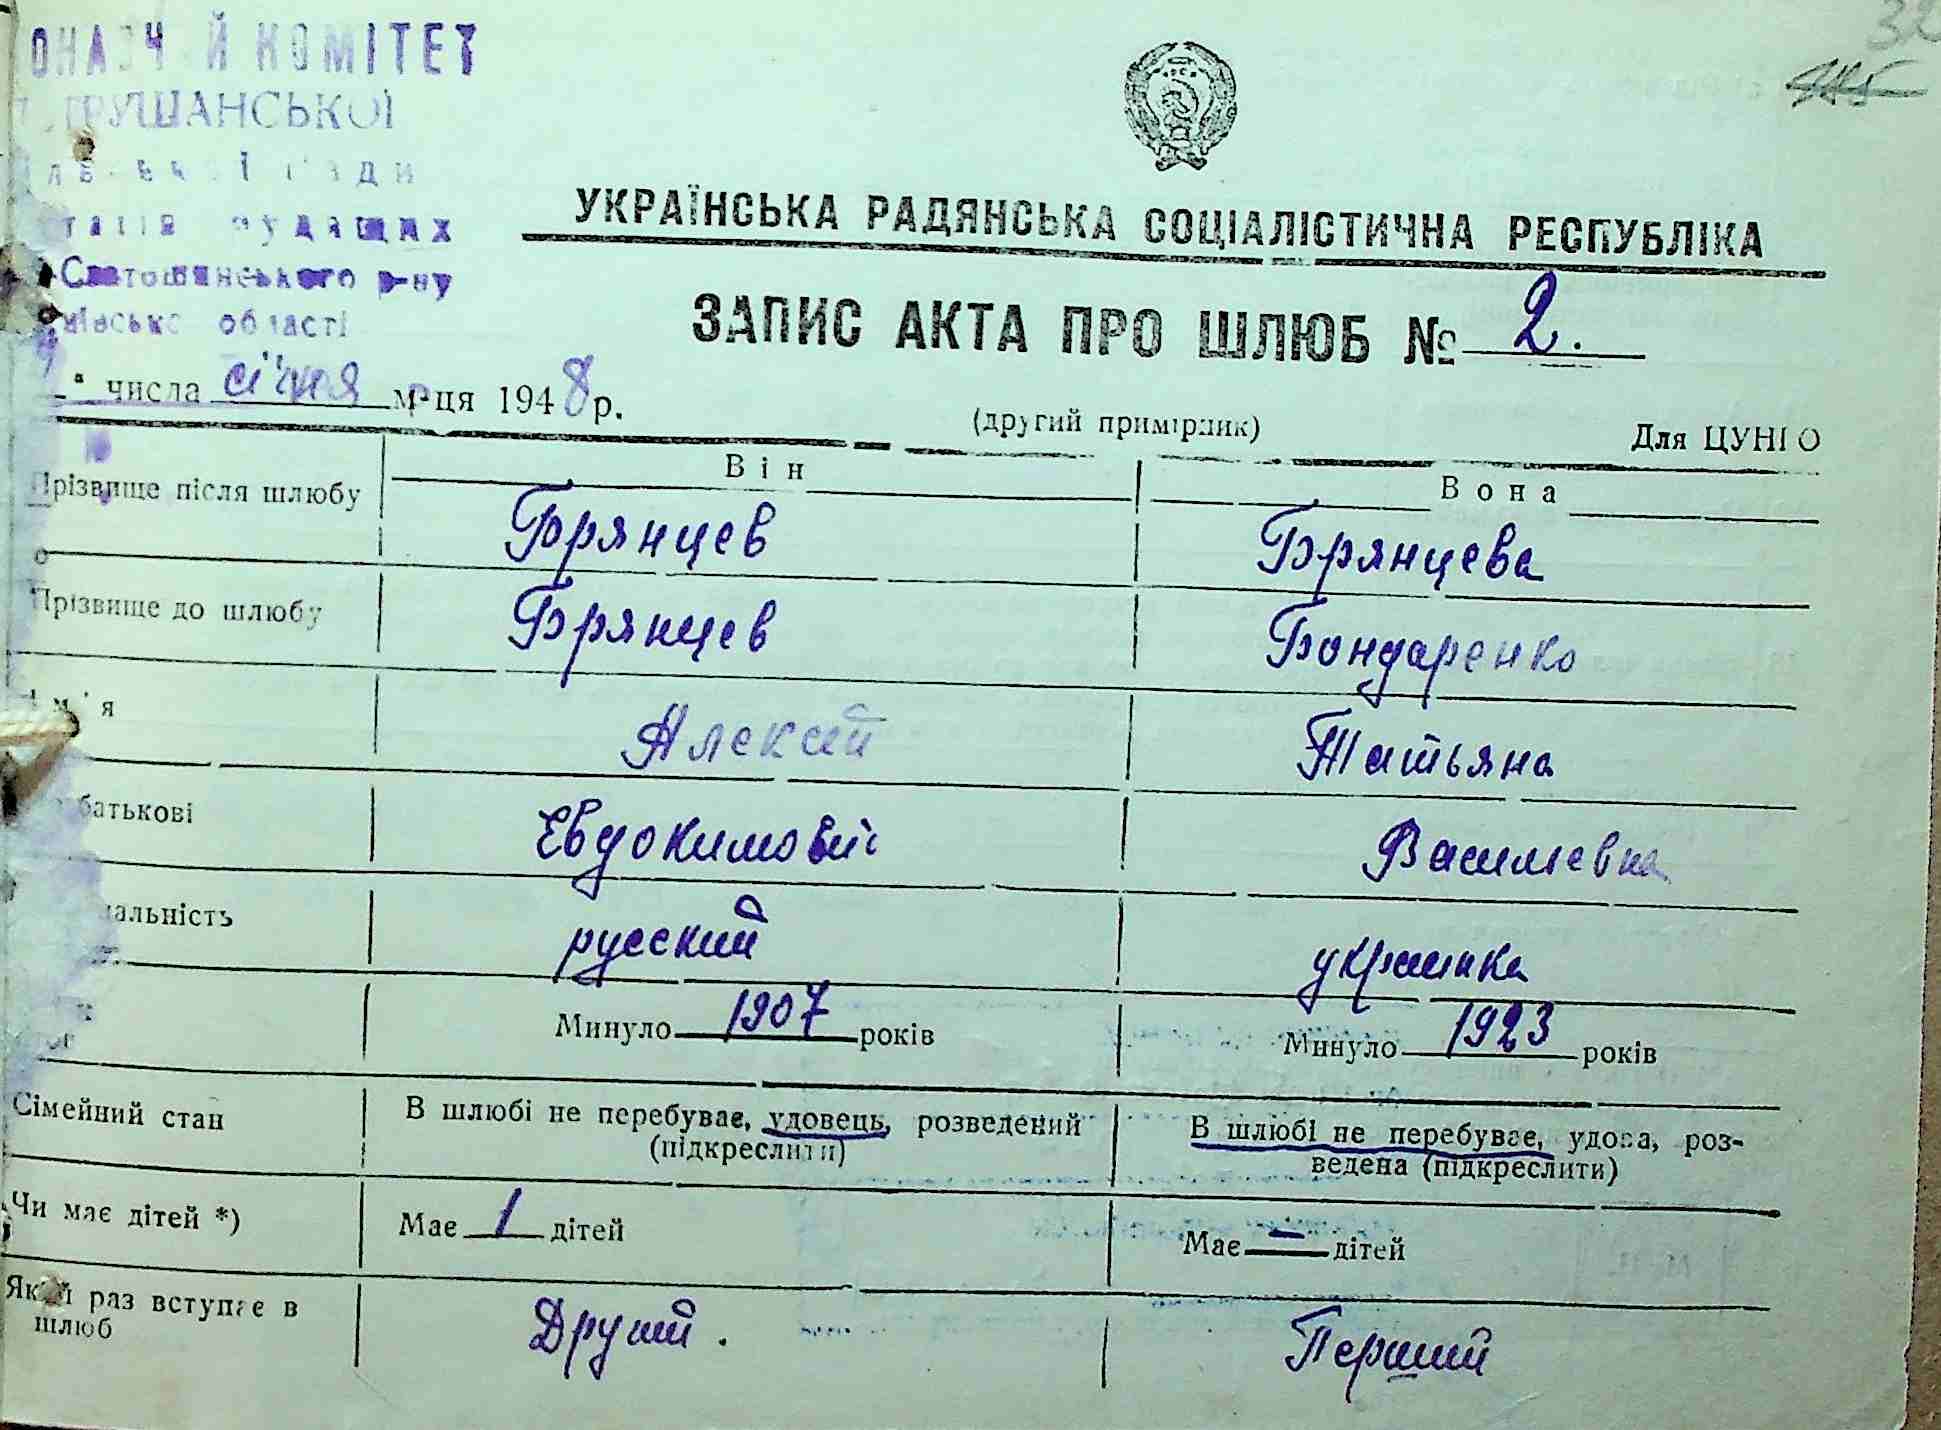 КОМІТЕТ
ТРУШАНСЬКОЇ
Святошинського р-ну
області
УКРАЇНСЬКА РАДЯНСЬКА СОЦІАЛІСТИЧНА РЕСПУБЛІКА
ЗАПИС АКТА ПРО ШЛЮБ № 2.
числа січня м-ця 1948 р.
(другий примірник) Для ЦУНГО
Він Вона
Прізвище після шлюбу Брянцев Брянцева
Прізвище до шлюбу Брянцев Бондаренко
Ім'я Алексей Татьяна
батькові Евдокимович Василевна
альність русский украинка
Минуло 1907 років Минуло 1923 років
Сімейний стан В шлюбі не перебуває, удовець, розведений В шлюбі не перебуває, удова, роз-
(підкреслити) ведена (підкреслити)
Чи має дітей *) Має 1 дітей Має — дітей
Який раз вступає в Другий. Перший
шлюб